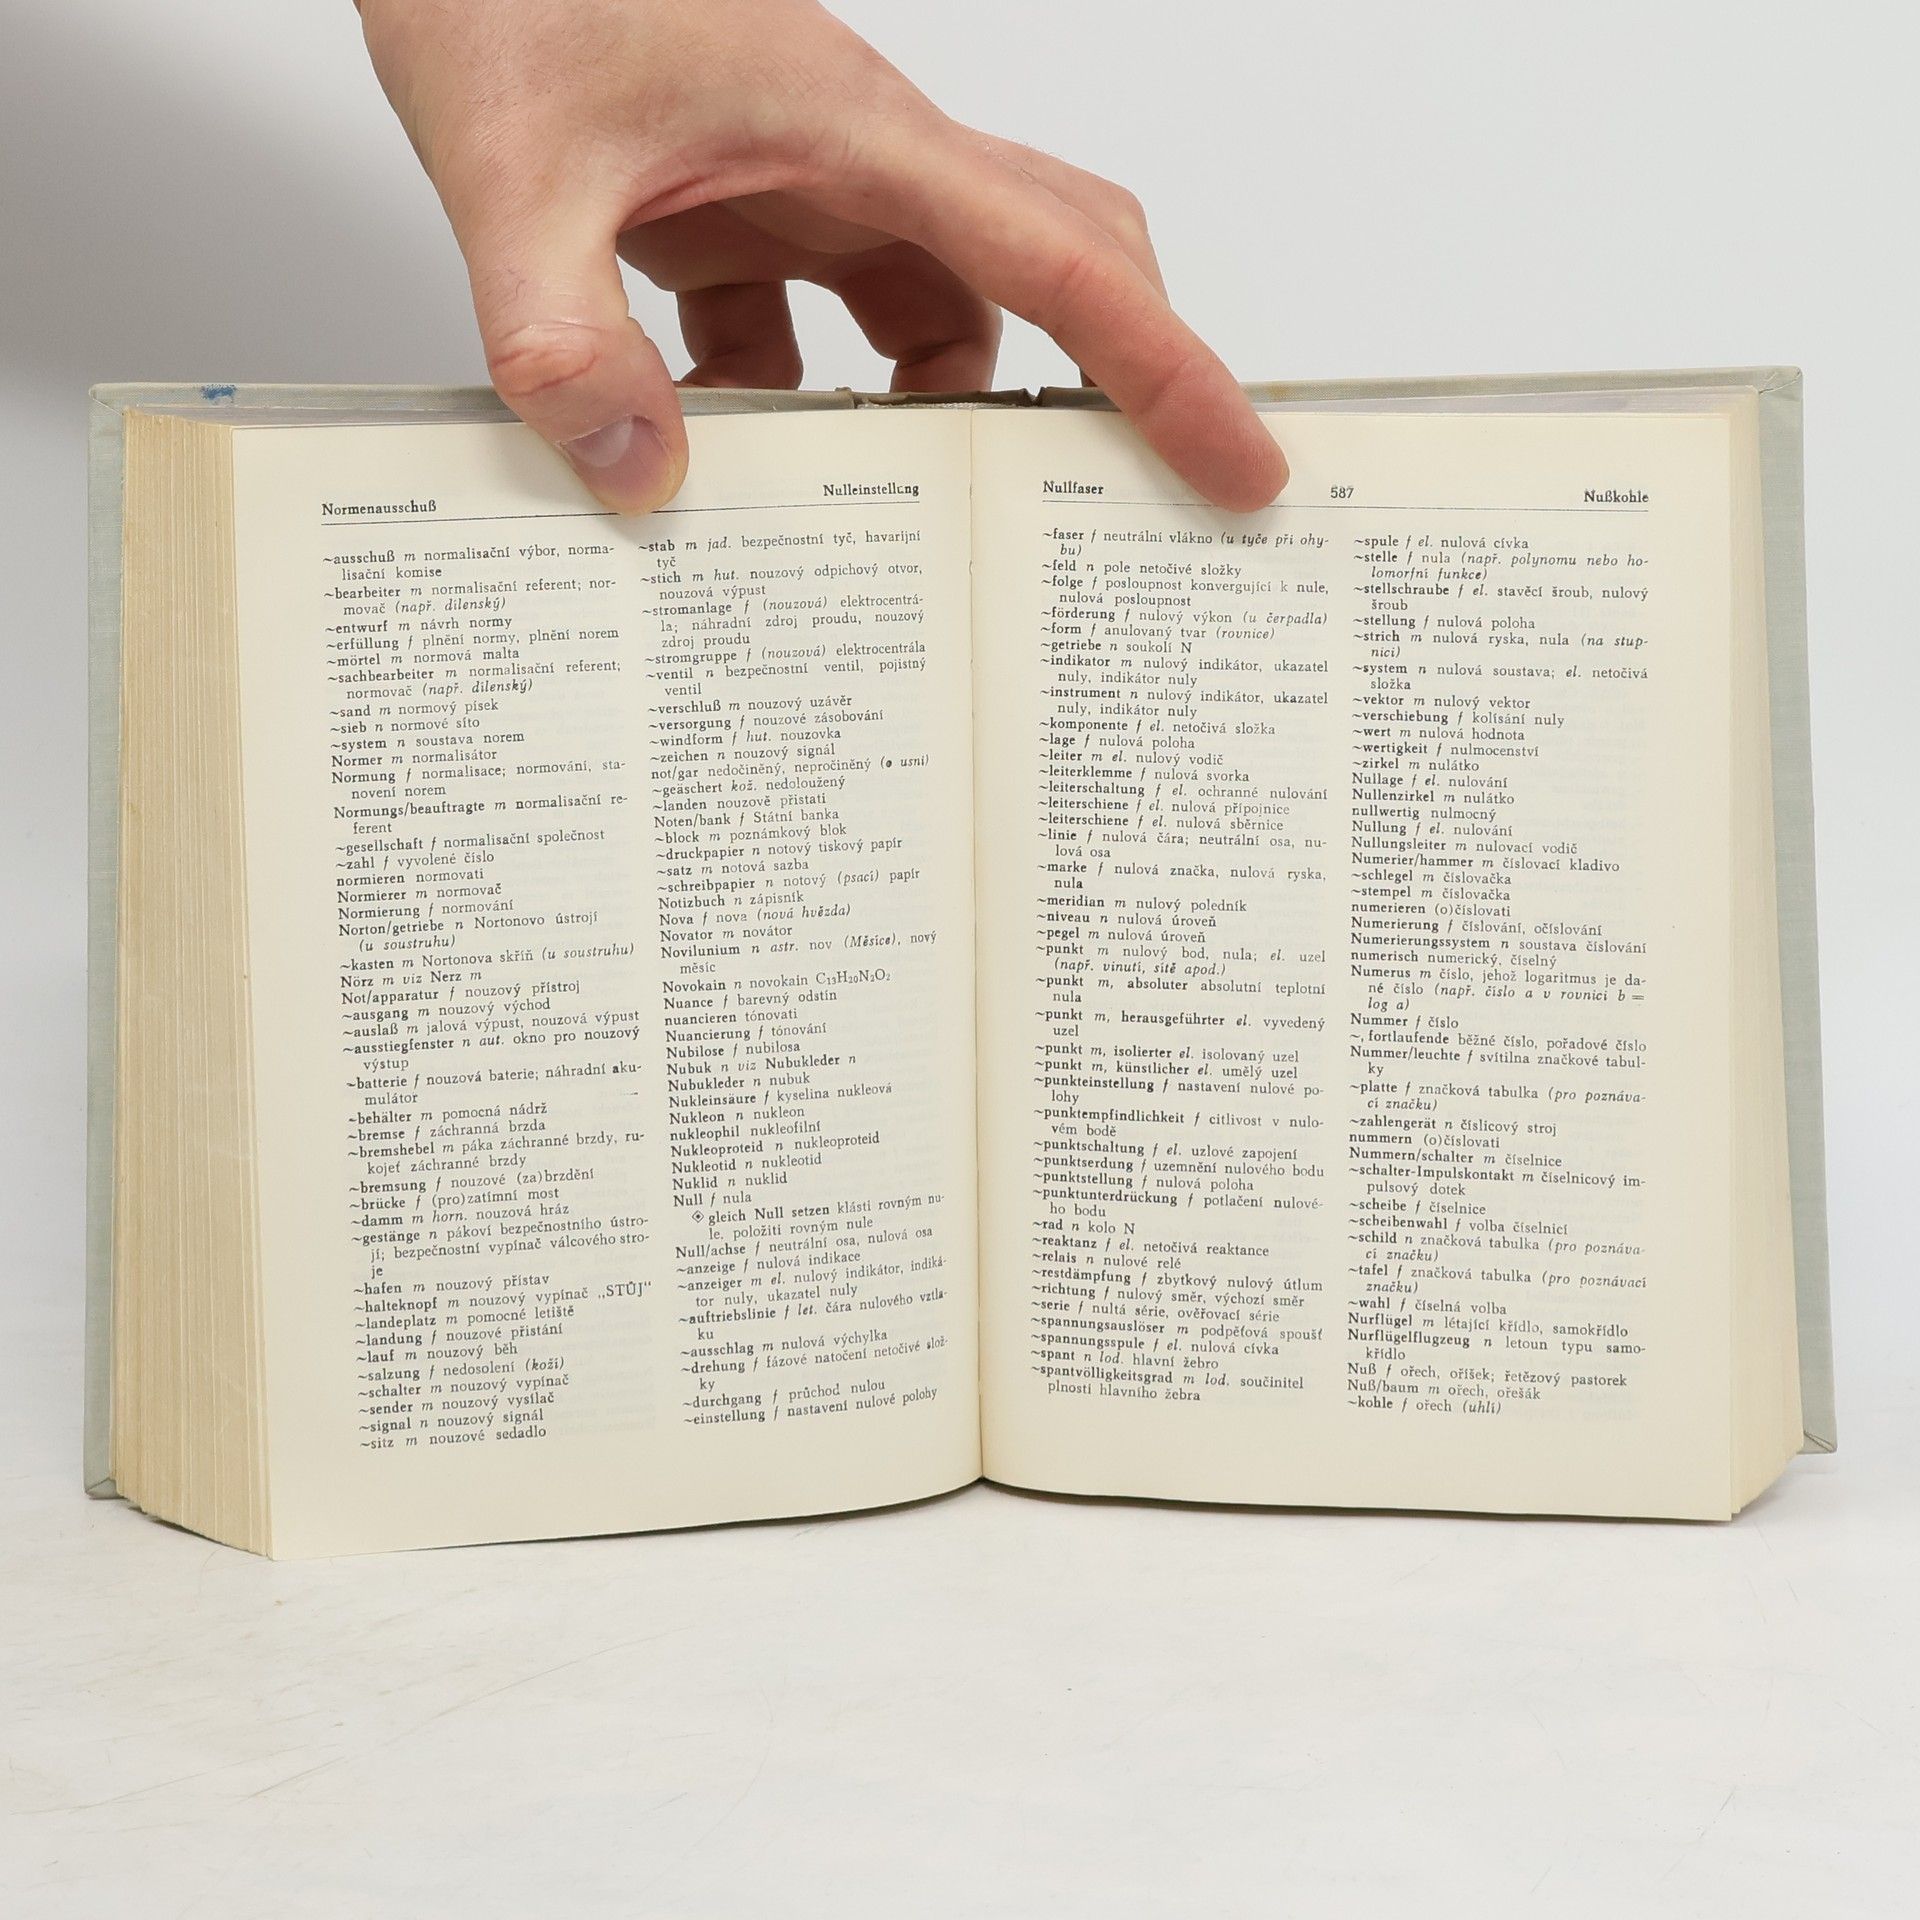 Normenausschuß
Nulleinstellung
~ausschuß m normalisační výbor, norma-
lisační komise
~bearbeiter m normalisační referent; nor-
movač (např. dílenský)
~entwurf m návrh normy
~erfüllung f plnění normy, plnění norem
~mörtel m normová malta
~sachbearbeiter m normalisační referent;
normovač (např. dílenský)
~sand m normový písek
~sieb n normové síto
~system n soustava norem
Normer m normalisátor
Normung f normalisace; normování, sta-
novení norem
Normungs/beauftragte m normalisační re-
ferent
~gesellschaft f normalisační společnost
~zahl f vyvolené číslo
normieren normovati
Normierer m normovač
Normierung f normování
Norton/getriebe n Nortonovo ústrojí
(u soustruhu)
~kasten m Nortonova skříň (u soustruhu)
Nörz m viz Nerz m
Not/apparatur f nouzový přístroj
~ausgang m nouzový východ
~auslaß m jalová výpust, nouzová výpust
~ausstiegfenster n aut. okno pro nouzový
výstup
~batterie f nouzová baterie; náhradní aku-
mulátor
~behälter m pomocná nádrž
~bremse f záchranná brzda
~bremshebel m páka záchranné brzdy, ru-
kojeť záchranné brzdy
~bremsung f nouzové (za)brzdění
~brücke f (pro)zatímní most
~damm m horn. nouzová hráz
~gestänge n pákoví bezpečnostního ústro-
jí; bezpečnostní vypínač válcového stro-
je
~hafen m nouzový přístav
~halteknopf m nouzový vypínač „STŮJ“
~landeplatz m pomocné letiště
~landung f nouzové přistání
~lauf m nouzový běh
~salzung f nedosolení (koží)
~schalter m nouzový vypínač
~sender m nouzový vysílač
~signal n nouzový signál
~sitz m nouzové sedadlo
~stab m jad. bezpečnostní tyč, havarijní
tyč
~stich m hut. nouzový odpichový otvor,
nouzová výpust
~stromanlage f (nouzová) elektrocentrá-
la; náhradní zdroj proudu, nouzový
zdroj proudu
~stromgruppe f (nouzová) elektrocentrála
~ventil n bezpečnostní ventil, pojistný
ventil
~verschluß m nouzový uzávěr
~versorgung f nouzové zásobování
~windform f hut. nouzovka
~zeichen n nouzový signál
not/gar nedočiněný, nepročiněný (o usni)
~geäschert kož. nedoloužený
~landen nouzově přistati
Noten/bank f Státní banka
~block m poznámkový blok
~druckpapier n notový tiskový papír
~satz m notová sazba
~schreibpapier n notový (psací) papír
Notizbuch n zápisník
Nova f nova (nová hvězda)
Novator m novátor
Novilunium n astr. nov (Měsíce), nový
měsíc
Novokain n novokain C₁₃H₂₀N₂O₂
Nuance f barevný odstín
nuancieren tónovati
Nuancierung f tónování
Nubilose f nubilosa
Nubuk n viz Nubukleder n
Nubukleder n nubuk
Nukleinsäure f kyselina nukleová
Nukleon n nukleon
nukleophil nukleofilní
Nukleoproteid n nukleoproteid
Nukleotid n nukleotid
Nuklid n nuklid
Null f nula
◈ gleich Null setzen klásti rovným nu-
le, položiti rovným nule
Null/achse f neutrální osa, nulová osa
~anzeige f nulová indikace
~anzeiger m el. nulový indikátor, indiká-
tor nuly, ukazatel nuly
~auftriebslinie f let. čára nulového vztla-
ku
~ausschlag m nulová výchylka
~drehung f fázové natočení netočivé slož-
ky
~durchgang f průchod nulou
~einstellung f nastavení nulové polohy
Nullfaser
587
Nußkohle
~faser f neutrální vlákno (u tyče při ohy-
bu)
~feld n pole netočivé složky
~folge f posloupnost konvergující k nule,
nulová posloupnost
~förderung f nulový výkon (u čerpadla)
~form f anulovaný tvar (rovnice)
~getriebe n soukolí N
~indikator m nulový indikátor, ukazatel
nuly, indikátor nuly
~instrument n nulový indikátor, ukazatel
nuly, indikátor nuly
~komponente f el. netočivá složka
~lage f nulová poloha
~leiter m el. nulový vodič
~leiterklemme f nulová svorka
~leiterschaltung f el. ochranné nulování
~leiterschiene f el. nulová přípojnice
~leiterschiene f el. nulová sběrnice
~linie f nulová čára; neutrální osa, nu-
lová osa
~marke f nulová značka, nulová ryska,
nula
~meridian m nulový poledník
~niveau n nulová úroveň
~pegel m nulová úroveň
~punkt m nulový bod, nula; el. uzel
(např. vinutí, sítě apod.)
~punkt m, absoluter absolutní teplotní
nula
~punkt m, herausgeführter el. vyvedený
uzel
~punkt m, isolierter el. isolovaný uzel
~punkt m, künstlicher el. umělý uzel
~punkteinstellung f nastavení nulové po-
lohy
~punktempfindlichkeit f citlivost v nulo-
vém bodě
~punktschaltung f el. uzlové zapojení
~punktserdung f uzemnění nulového bodu
~punktstellung f nulová poloha
~punktunterdrückung f potlačení nulové-
ho bodu
~rad n kolo N
~reaktanz f el. netočivá reaktance
~relais n nulové relé
~restdämpfung f zbytkový nulový útlum
~richtung f nulový směr, výchozí směr
~serie f nultá série, ověřovací série
~spannungsauslöser m podpěťová spoušť
~spannungsspule f el. nulová cívka
~spant n lod. hlavní žebro
~spantvölligkeitsgrad m lod. součinitel
plnosti hlavního žebra
~spule f el. nulová cívka
~stelle f nula (např. polynomu nebo ho-
lomorfní funkce)
~stellschraube f el. stavěcí šroub, nulový
šroub
~stellung f nulová poloha
~strich m nulová ryska, nula (na stup-
nici)
~system n nulová soustava; el. netočivá
složka
~vektor m nulový vektor
~verschiebung f kolísání nuly
~wert m nulová hodnota
~wertigkeit f nulmocenství
~zirkel m nulátko
Nullage f el. nulování
Nullenzirkel m nulátko
nullwertig nulmocný
Nullung f el. nulování
Nullungsleiter m nulovací vodič
Numerier/hammer m číslovací kladivo
~schlegel m číslovačka
~stempel m číslovačka
numerieren (o)číslovati
Numerierung f číslování, očíslování
Numerierungssystem n soustava číslování
numerisch numerický, číselný
Numerus m číslo, jehož logaritmus je da-
né číslo (např. číslo a v rovnici b =
log a)
Nummer f číslo
~, fortlaufende běžné číslo, pořadové číslo
Nummer/leuchte f svítilna značkové tabul-
ky
~platte f značková tabulka (pro poznáva-
cí značku)
~zahlengerät n číslicový stroj
nummern (o)číslovati
Nummern/schalter m číselnice
~schalter-Impulskontakt m číselnicový im-
pulsový dotek
~scheibe f číselnice
~scheibenwahl f volba číselnicí
~schild n značková tabulka (pro poznáva-
cí značku)
~tafel f značková tabulka (pro poznávací
značku)
~wahl f číselná volba
Nurflügel m létající křídlo, samokřídlo
Nurflügelflugzeug n letoun typu samo-
křídlo
Nuß f ořech, oříšek; řetězový pastorek
Nuß/baum m ořech, ořešák
~kohle f ořech (uhlí)